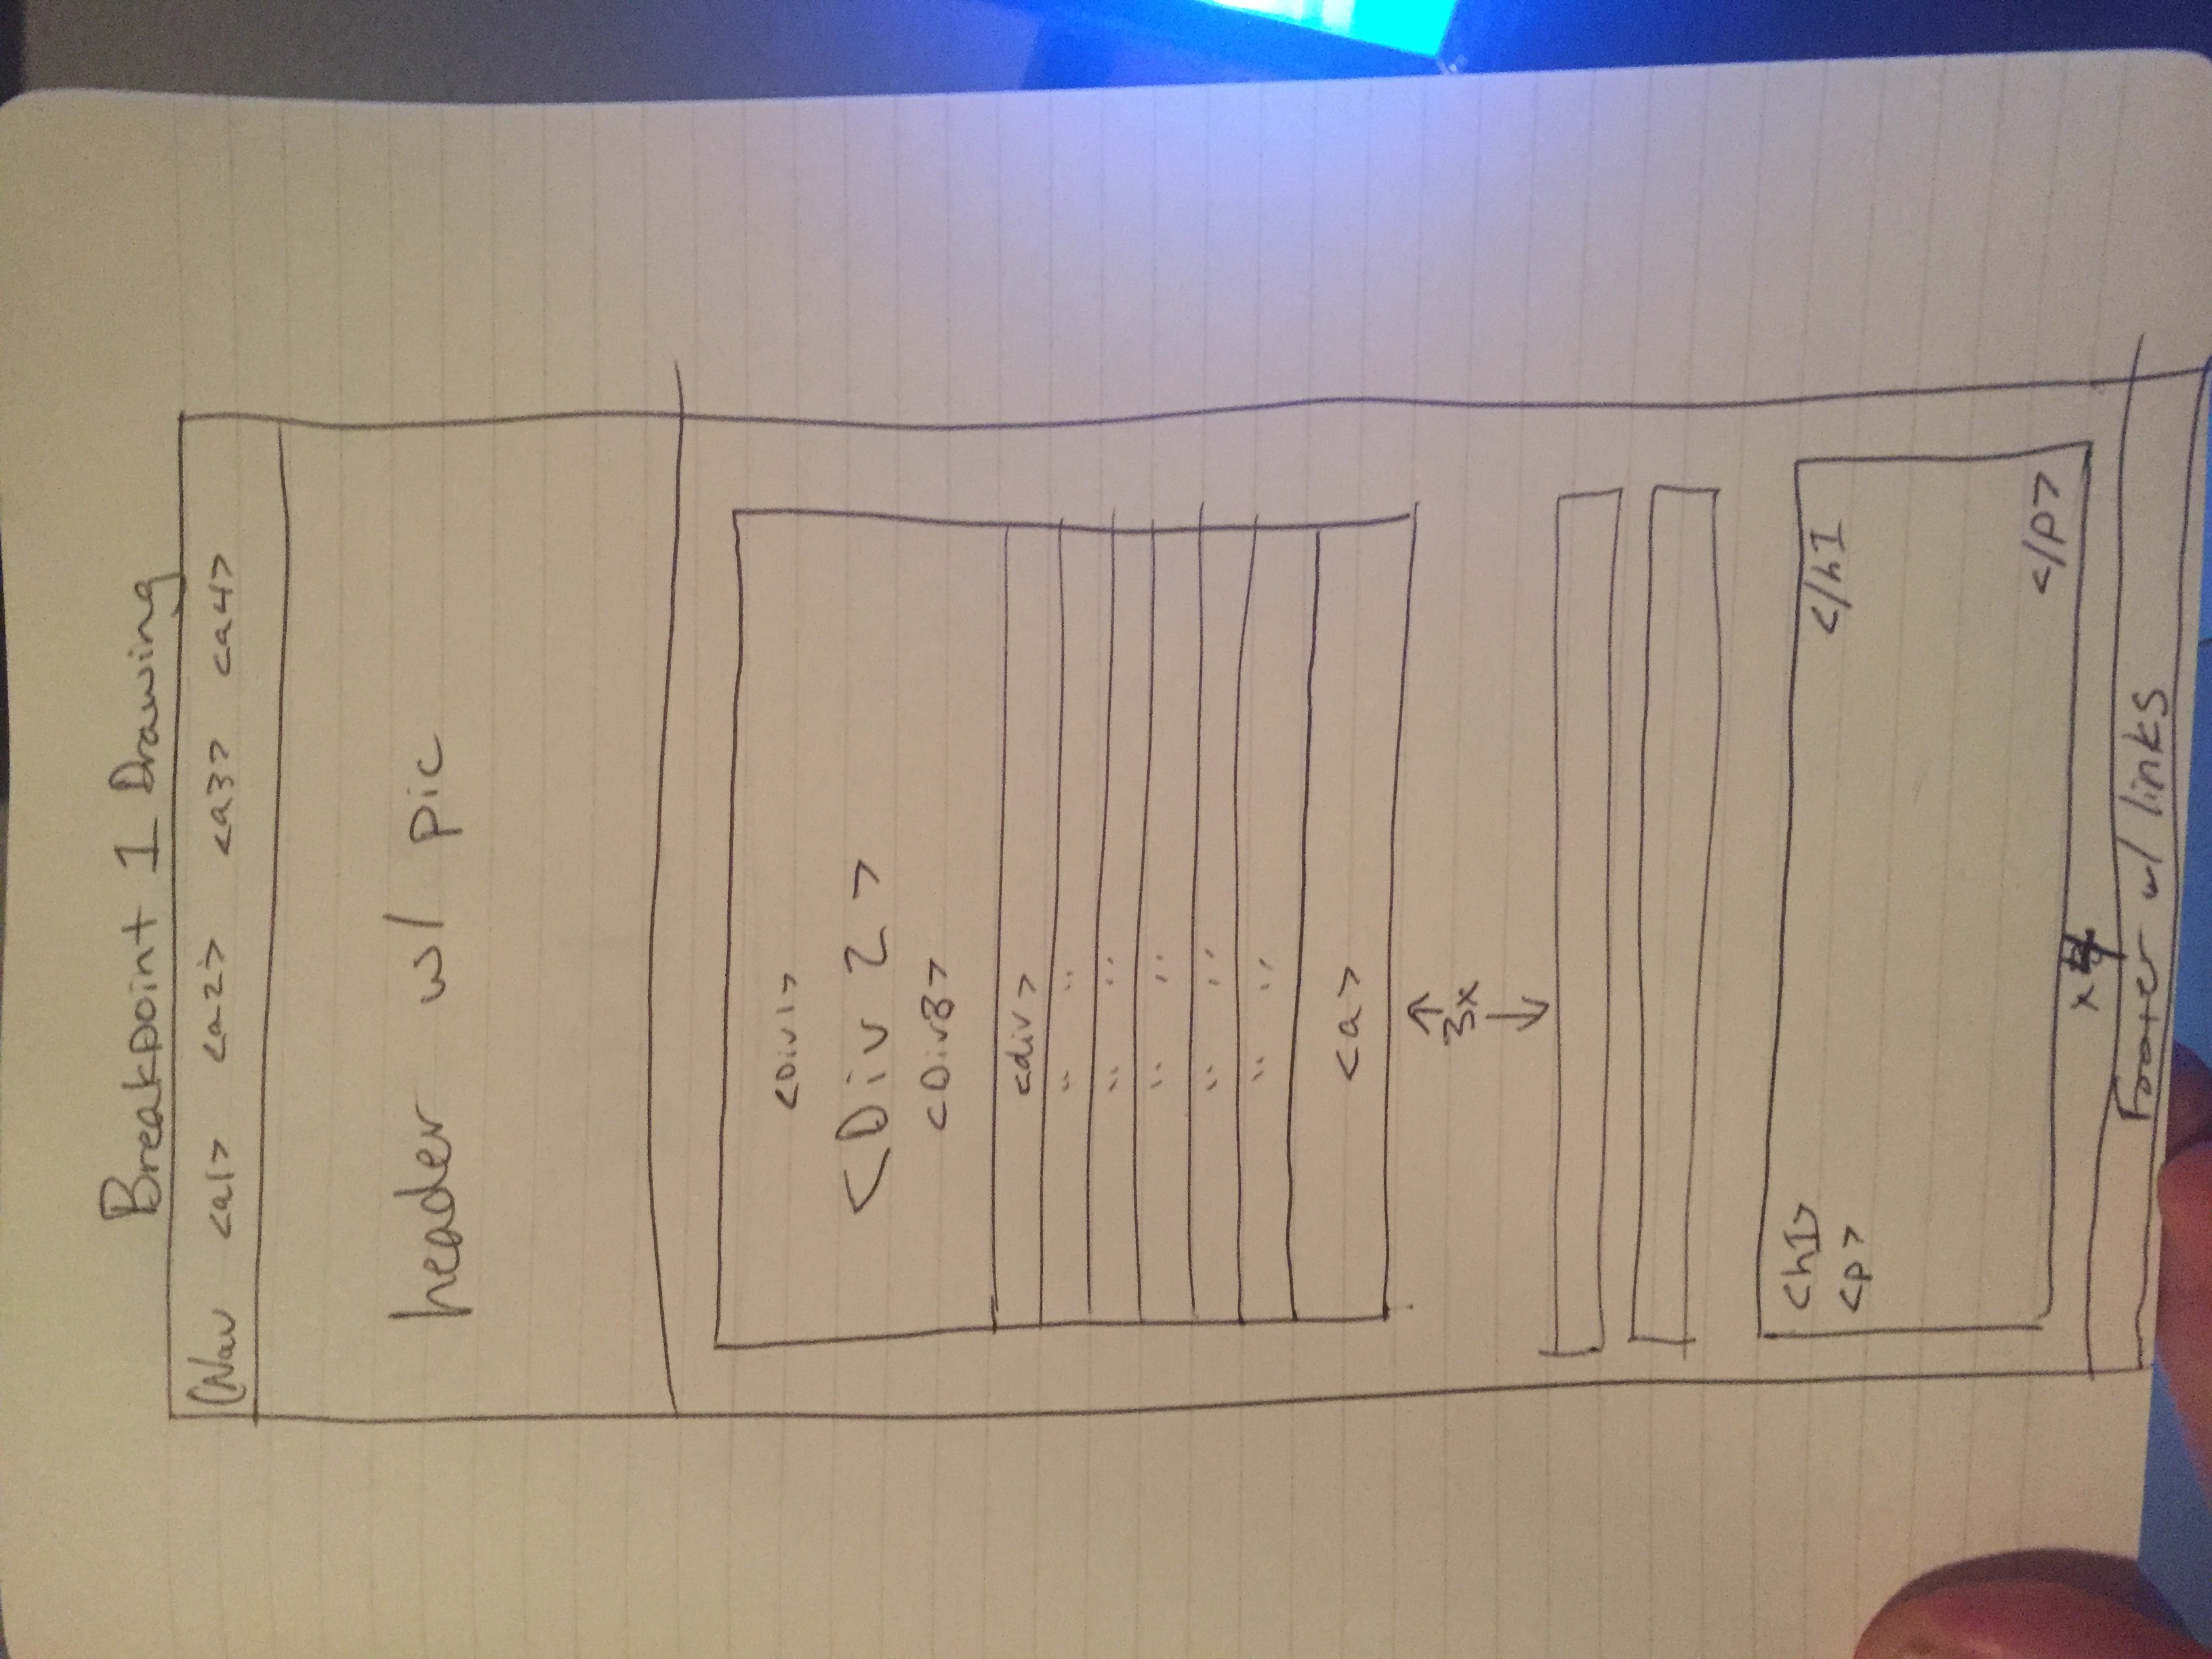 Breakpoint 1 Drawing
Nav <a1> <a2> <a3> <a4>
header w/ pic
<Div1>
<Div 2>
<Div3>
<div>
" "
" "
" "
" "
" "
<a>
3x
<h1> </h1
<p>
</p>
x 4
Footer w/ links